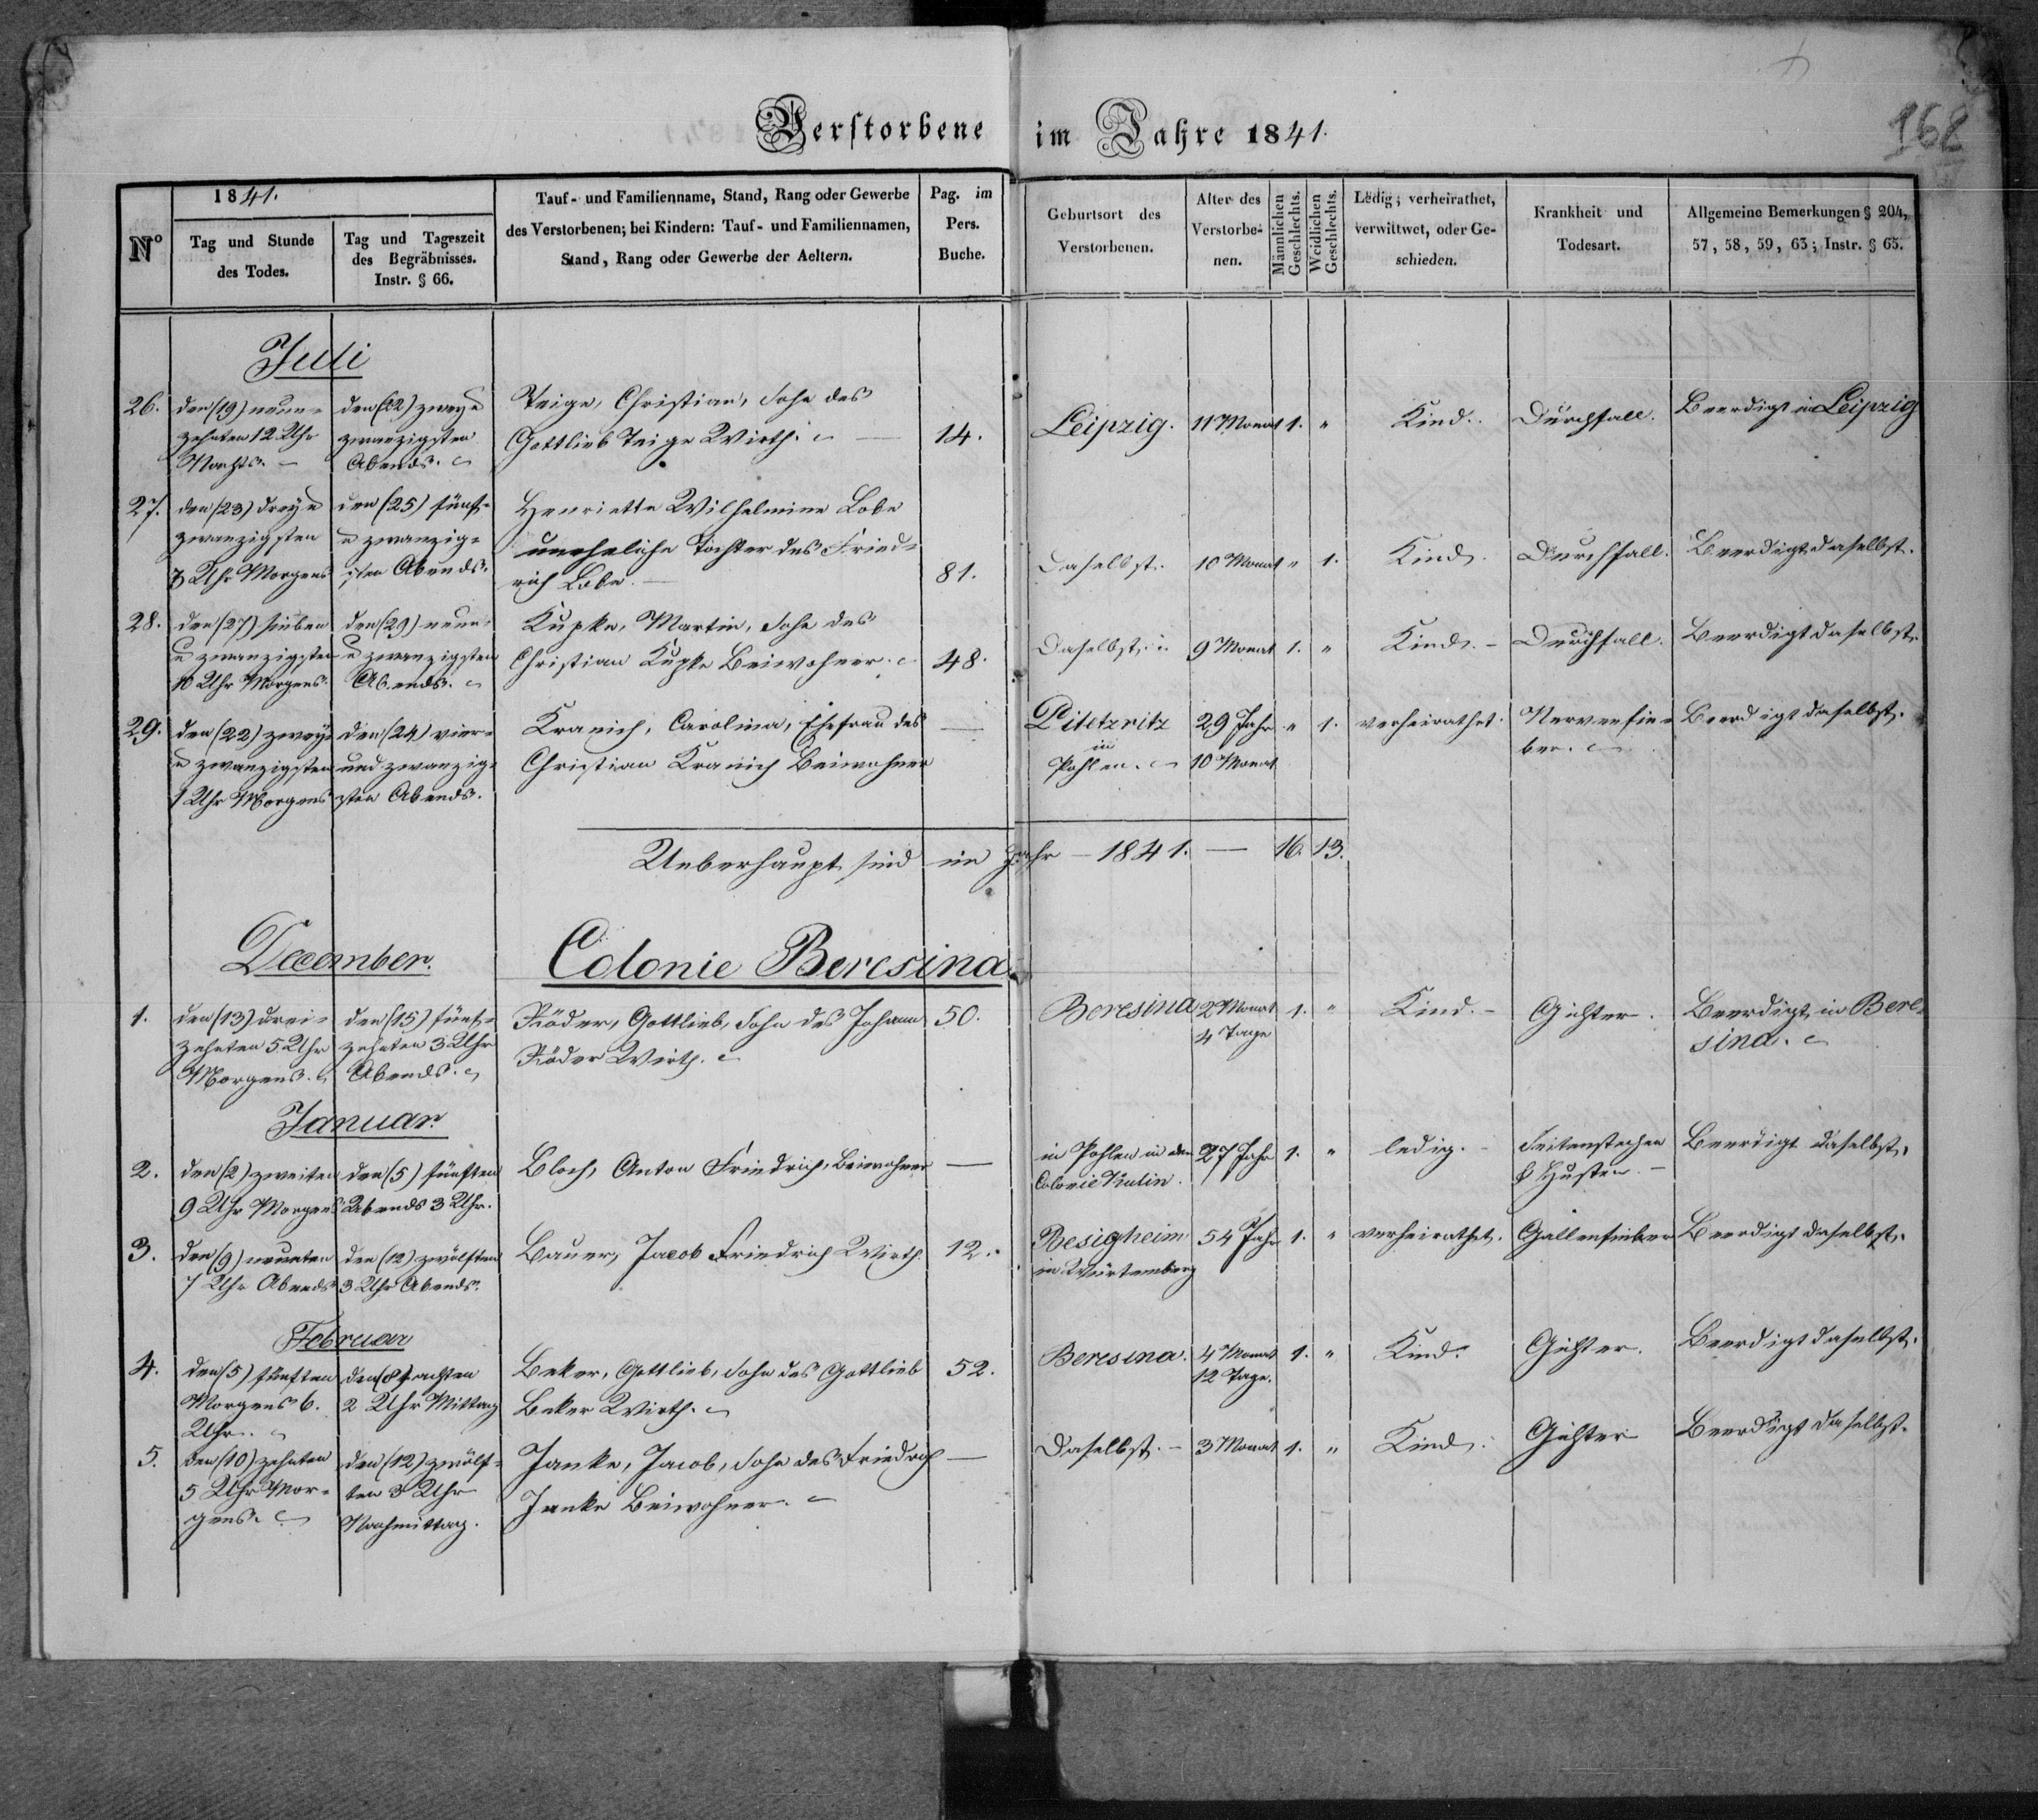 Verstorbene im Jahre 1841.
162
N°
1841.
Tag und Stunde
des Todes.
Tag und Tageszeit
des Begräbnisses.
Instr. § 66.
Tauf- und Familienname, Stand, Rang oder Gewerbe
des Verstorbenen; bei Kindern: Tauf- und Familiennamen,
Stand, Rang oder Gewerbe der Aeltern.
Pag. im
Pers.
Buche.
Geburtsort des
Verstorbenen.
Alter des
Verstorbe-
nen.
Männlichen
Geschlechts.
Weiblichen
Geschlechts.
Ledig; verheirathet,
verwittwet, oder Ge-
schieden.
Krankheit und
Todesart.
Allgemeine Bemerkungen § 204,
57, 58, 59, 63; Instr. § 65.
Juli
26.
den (19) neun-
zehnten 12 Uhr
Nachts. –
den (22) zwey u
zwanzigsten
Abends.
Teige, Christian, Sohn des
Gottlieb Teige Wirth. –
14.
Leipzig.
11 Monat
1.
"
Kind.
Durchfall.
Beerdigt in Leipzig
27.
den (23) drey u
zwanzigsten
3 Uhr Morgens
den (25) fünf-
u zwanzig-
sten Abends.
Henriette Wilhelmine Lobe
uneheliche Tochter des Fried-
rich Lobe. –
81.
Daselbst.
10 Monat
"
1.
Kind.
Durchfall.
Beerdigt daselbst.
28.
den (27) sieben
u zwanzigsten
10 Uhr Morgens.
den (29) neun-
u zwanzigsten
Abends.
Kupke, Martin, Sohn des
Christian Kupke Beiwohner.
48.
Daselbst.
9 Monat
1.
"
Kind. –
Durchfall.
Beerdigt daselbst.
29.
den (22) zwey-
u zwanzigsten
1 Uhr Morgens
den (24) vier-
und zwanzig-
sten Abends.
Kranich, Carolina, Ehefrau des
Christian Kranich Beiwohner
—
Pitetzritz
in
Pohlen.
29 Jahr
10 Monat
"
1.
verheirathet.
Nervenfie-
ber.
Beerdigt daselbst.
Ueberhaupt sind im Jahr – 1841. — 16. 13.
December.
Colonie Beresina.
1.
den (13) drei-
zehnten 5 Uhr
Morgens.
den (15) fünf-
zehnten 3 Uhr
Abends.
Röder, Gottlieb, Sohn des Johann
Röder Wirth.
50.
Beresina
2 Monat
4 Tage
1.
"
Kind. –
Gichter.
Beerdigt in Bere-
sina.
Januar.
2.
den (2) zweiten
9 Uhr Morgens
den (5) fünften
Abends 3 Uhr.
Bloch, Anton Friedrich, Beiwohner
—
in Pohlen in der
Colonie Kulin.
27 Jahr
1.
"
ledig. –
Seitenstechen
& Husten. –
Beerdigt daselbst.
3.
den (9) neunten
7 Uhr Abends
den (12) zwölften
3 Uhr Abends.
Bauer, Jacob Friedrich Wirth.
12.
Besigheim
in Würtemberg
54 Jahr
1.
"
verheirathet.
Gallenfieber
Beerdigt daselbst.
Februar
4.
den (5) fünften
Morgens 6.
Uhr.
den (8) achten
2 Uhr Mittag
Beker, Gottlieb, Sohn des Gottlieb
Beker Wirth.
52.
Beresina.
4 Monat
12 Tage.
1.
"
Kind.
Gichter.
Beerdigt daselbst.
5.
den (10) zehnten
5 Uhr Mor-
gens.
den (12) zwölf-
ten 3 Uhr
Nachmittag.
Janke, Jacob, Sohn des Friedrich
Janke Beiwohner.
—
Daselbst. –
3 Monat
1.
"
Kind.
Gichter
Beerdigt daselbst.